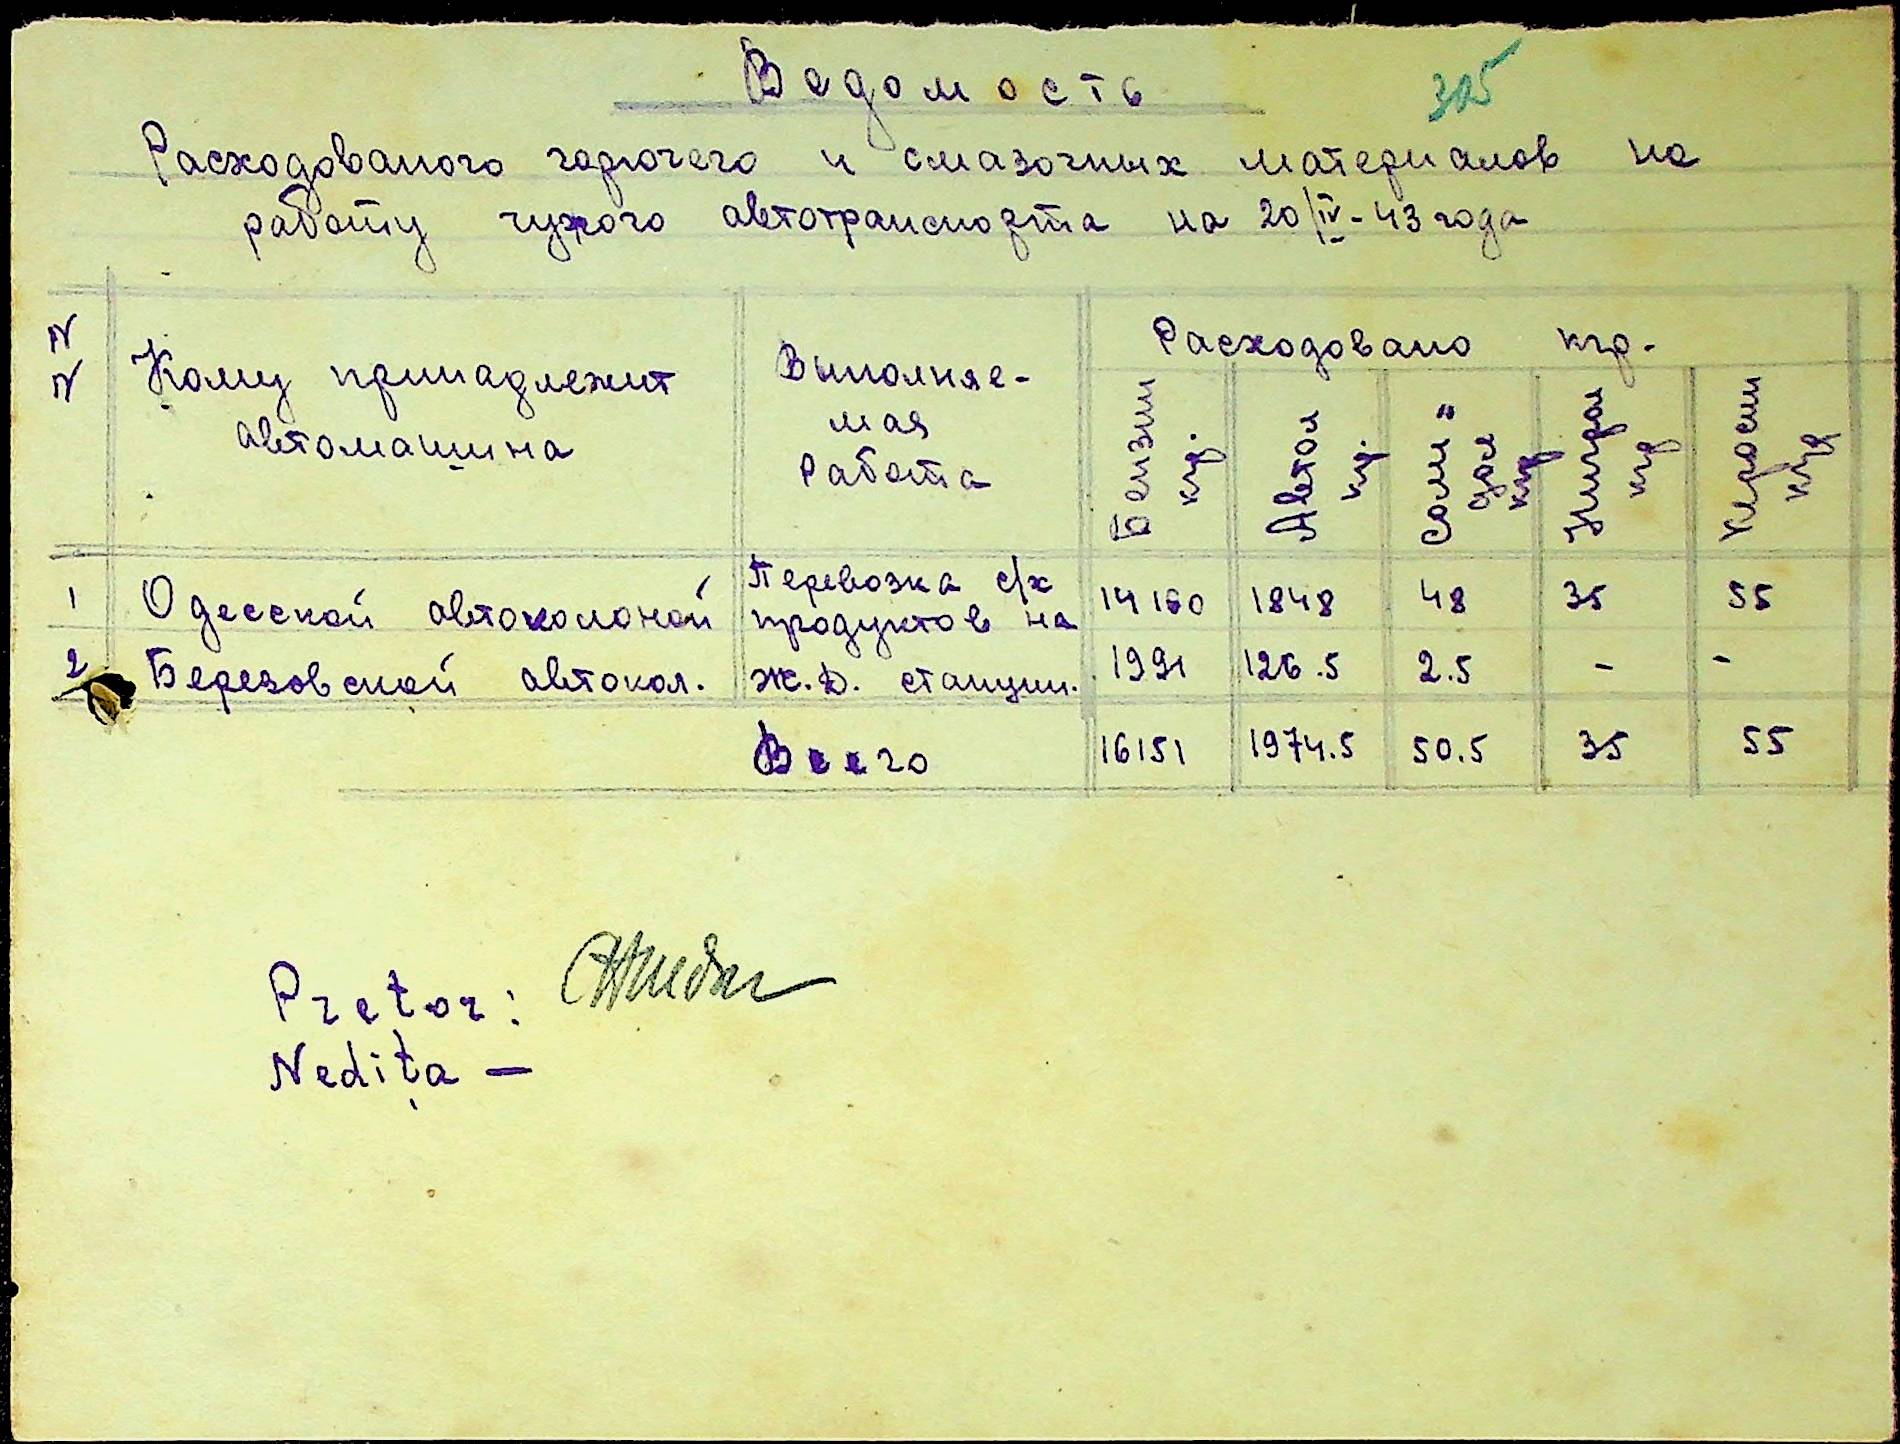 Ведомость
315
Расходованого горючего и смазочных материалов на
работу чужого автотранспорта на 20/IV-43 года
N
N
Кому принадлежит
автомашина
Выполняе-
мая
работа
Расходовано кгр.
Бензин
кгр.
Автол
кгр.
Соли"
дол
кгр
Нигрол
кгр
Керосин
кгр
1 Одесской автоколоной
Перевозка с/х
продуктов на
14160 1848 48 35 55
2 Березовской автокол.
ж.д. станции.
1991 126.5 2.5 - -
Всего 16151 1974.5 50.5 35 55
Pretor:
Nediţa —